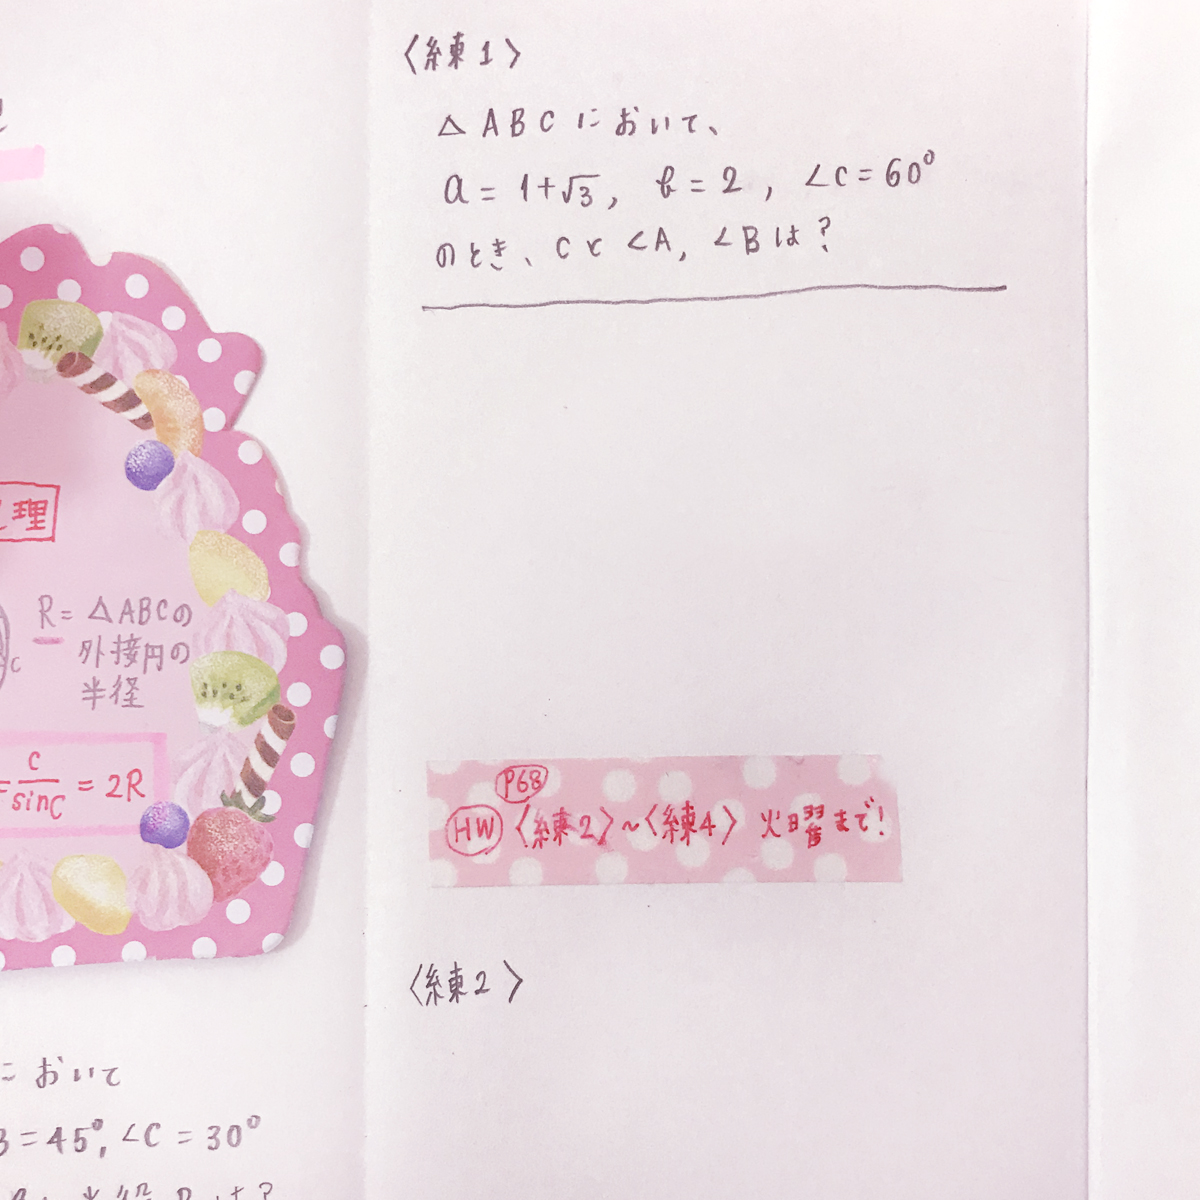 理
R= △ABCの
外接円の
半径
c
c/sinC = 2R
において
B=45°, ∠C=30°
〈練1〉
△ABCにおいて、
a=1+√3, b=2, ∠C=60°
のとき、Cと∠A, ∠Bは?
P68
HW 〈練2〉~〈練4〉 火曜まで!
〈練2〉